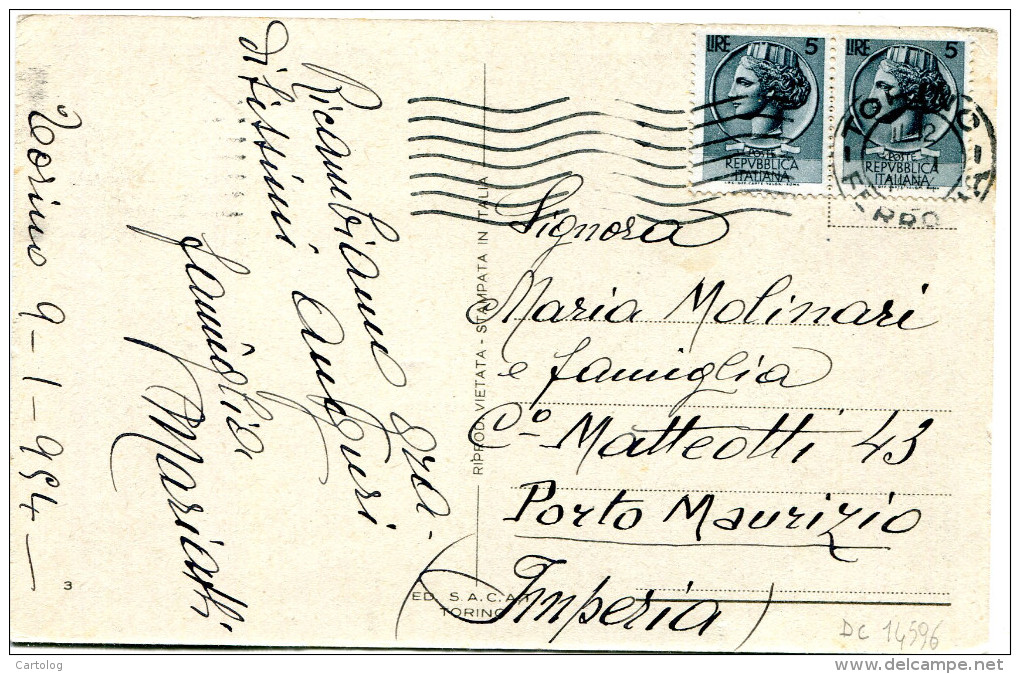 Torino 9-1-954-
Ricambiamo gra-
ditissimi auguri
famiglia
Mariotti
RIPROD. VIETATA - STAMPATA IN ITALIA
ED. S.A.C.A.T.
TORINO
3
LIRE 5
POSTE
REPVBBLICA
ITALIANA
LIRE 5
POSTE
REPVBBLICA
ITALIANA
TORINO
FERR
Signora
Maria Molinari
e famiglia
Cº Matteotti 43
Porto Maurizio
(Imperia)
DC 14596
Cartolog
delcampe.net